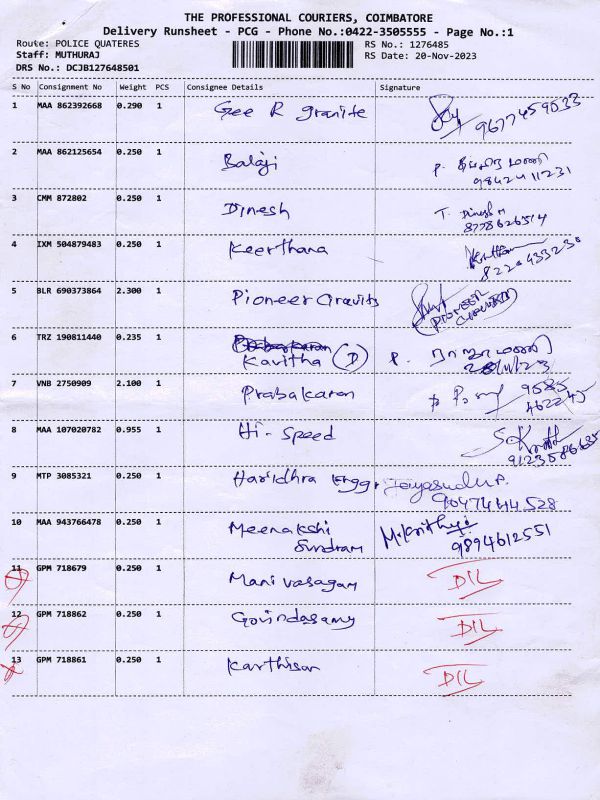 THE PROFESSIONAL COURIERS, COIMBATORE
Delivery Runsheet - PCG - Phone No.:0422-3505555 - Page No.:1
Route: POLICE QUATERES RS No.: 1276485
Staff: MUTHURAJ RS Date: 20-Nov-2023
DRS No.: DCJB127648501
S No Consignment No Weight PCS Consignee Details Signature
1 MAA 862392668 0.290 1 Gee R granite 9677459033
2 MAA 862125654 0.250 1 Balaji P.
9842411231
3 CMM 872802 0.250 1 Dinesh T. Dinesh
8778626514
4 IXM 504879483 0.250 1 Keerthana
5 BLR 690373864 2.300 1 Pioneer Gravits PIONEER
6 TRZ 190811440 0.235 1
Kavitha (D) P.
7 VNB 2750909 2.100 1 Prabakaran 9585
462245
8 MAA 107020782 0.955 1 Hi-Speed
9123586635
9 MTP 3085321 0.250 1 Haridhra Engg Jayasudha P.
9047444528
10 MAA 943766478 0.250 1 Meenakshi
Sundram 9894612551
11 GPM 718679 0.250 1 Manivasagam DIL
12 GPM 718862 0.250 1 Govindasamy DIL
13 GPM 718861 0.250 1 DIL